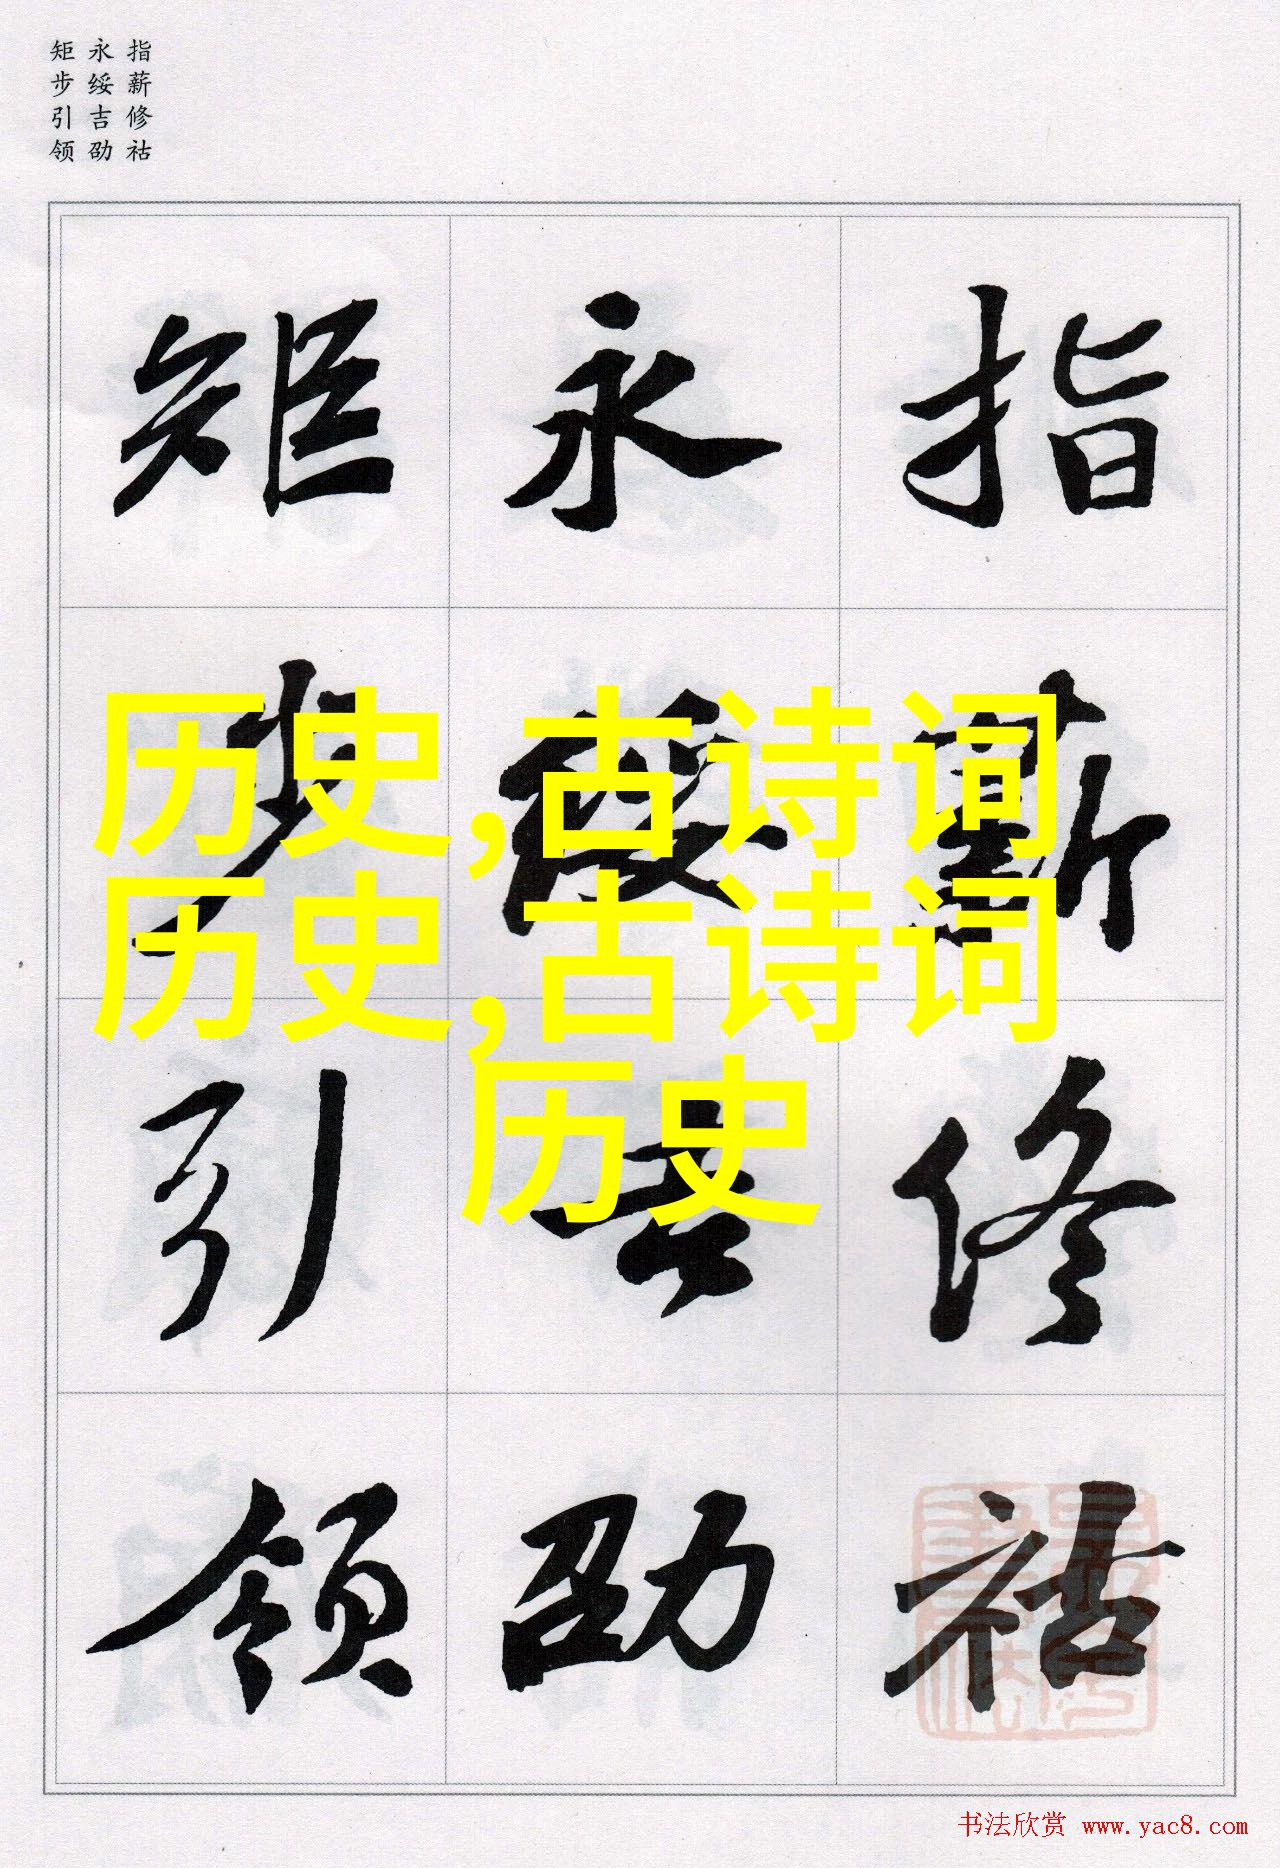 指薪修祜
永绥吉劭
矩步引领
指薪修祜
永绥吉劭
矩步引领
历史,古诗词
历史,古诗词
历史
书法欣赏 www.yac8.com